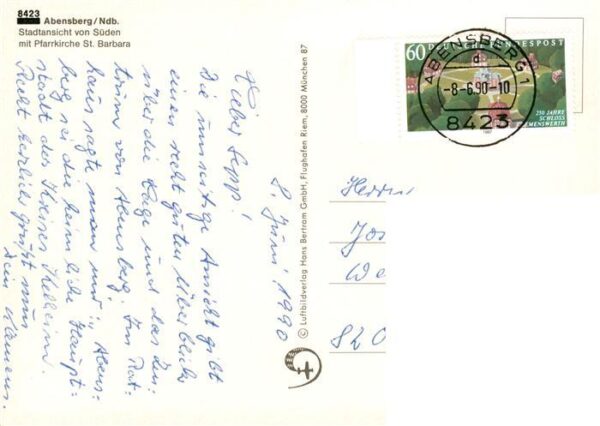 8423
Abensberg/Ndb.
Stadtansicht von Süden
mit Pfarrkirche St. Barbara
8. Juni 1990
Lieber Sepp!
Die umseitige Ansicht gibt
einen recht guten Überblick
über die Lage und das Zen-
trum von Abensberg. Im Rat-
haus sagte man mir: „Abens-
berg sei die heimliche Haupt-
stadt des Kreises Kelheim.
Recht herzlichst grüßt
Dein
© Luftbildverlag Hans Bertram GmbH, Flughafen Riem, 8000 München 87
60 DEUTSCHE BUNDESPOST
250 JAHRE
SCHLOSS
CLEMENSWERTH
1987
ABENSBERG 1
d
-8.-6.90-10
8423
Herrn
Jos
We
820